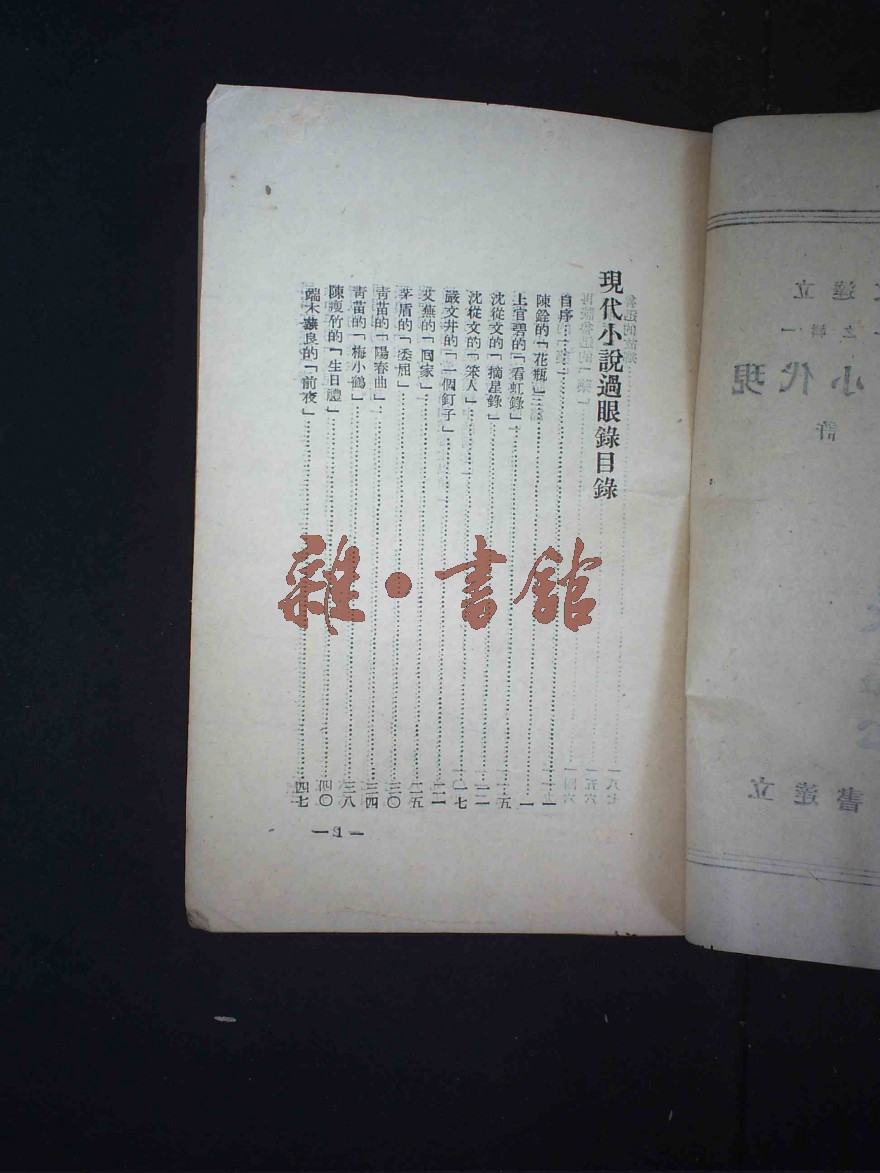 現代小說過眼錄目錄
自序
陳銓的「花瓶」 一
上官碧的「看虹錄」 一
沈從文的「摘星錄」 五
沈從文的「笨人」 一二
嚴文井的「一個釘子」 一七
艾蕪的「回家」 二一
茅盾的「委屈」 二五
青苗的「陽春曲」 三〇
青苗的「梅小鶴」 三四
陳瘦竹的「生日禮」 三八
端木蕻良的「前夜」 四〇
四七
—1—
雜·書館
立達
一輯之
現代小
許
立達書